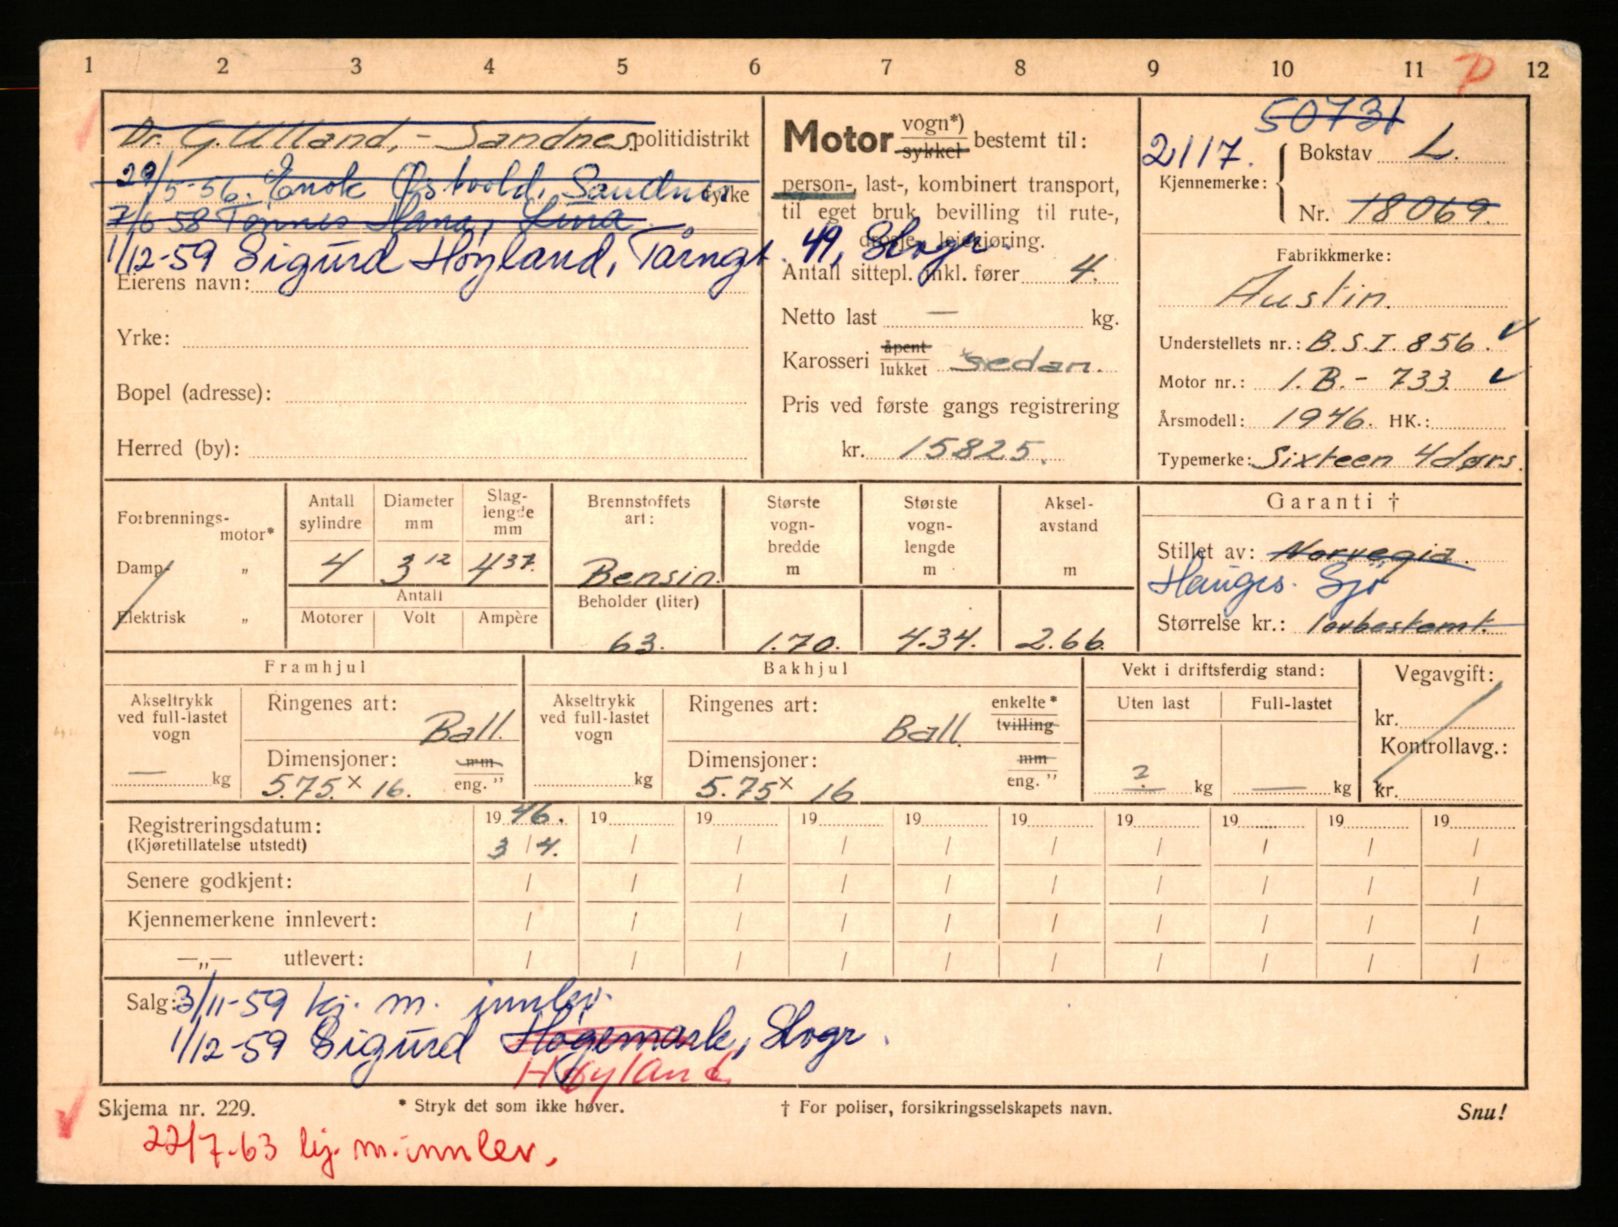 1 2 3 4 5 6 7 8 9 10 11 12
Dr. G. Ulland, - Sandnes. politidistrikt
29/5-56. Enok Østvold, Sandnes fylke
7/6 58 Tønnes Hana, Lura
1/12-59 Sigurd Høyland, Tårngt. 49, Stvgr.
Eierens navn:
Yrke:
Bopel (adresse):
Herred (by):
Motor vogn*) sykkel bestemt til:
person-, last-, kombinert transport,
til eget bruk, bevilling til rute-,
drosje, leiekjøring.
Antall sittepl. inkl. fører 4.
Netto last — kg.
Karosseri åpent lukket sedan.
Pris ved første gangs registrering
kr. 15825.
50731
2117.
Kjennemerke: Bokstav L.
Nr. 18069.
Fabrikkmerke:
Austin.
Understellets nr.: B.S.I. 856.
Motor nr.: 1.B.- 733.
Årsmodell: 1946. HK.:
Typemerke: Sixteen 4dørs.
Forbrennings-
motor*
Damp „
Elektrisk „
Antall sylindre
4
Diameter mm
3 12
Slag-
lengde
mm
4 37.
Antall
Motorer Volt Ampère
Brennstoffets
art:
Bensin.
Beholder (liter)
63.
Største
vogn-
bredde
m
1.70.
Største
vogn-
lengde
m
4.34.
Aksel-
avstand
m
2.66.
Garanti †
Stillet av: Norvegia.
Hauges. Sjø
Størrelse kr.: lovbestemt.
Framhjul
Akseltrykk
ved full-lastet
vogn
— kg
Ringenes art:
Ball.
Dimensjoner: mm
5.75 x 16. eng. ”
Bakhjul
Akseltrykk
ved full-lastet
vogn
kg
Ringenes art: enkelte*
Ball. tvilling
Dimensjoner: mm
5.75 x 16 eng. ”
Vekt i driftsferdig stand:
Uten last Full-lastet
? kg — kg
Vegavgift:
kr.
Kontrollavg.:
kr.
Registreringsdatum: 19 46. 19 19 19 19 19 19 19 19 19
(Kjøretillatelse utstedt) 3 / 4. / / / / / / / / /
Senere godkjent: / / / / / / / / / /
Kjennemerkene innlevert: / / / / / / / / / /
—„— utlevert: / / / / / / / / / /
Salg: 3/11-59 kj. m. innlev.
1/12-59 Sigurd Høgemark, Stvgr.
Høyland
Skjema nr. 229. * Stryk det som ikke høver. † For poliser, forsikringsselskapets navn. Snu!
22/7-63 kj. m. innlev.